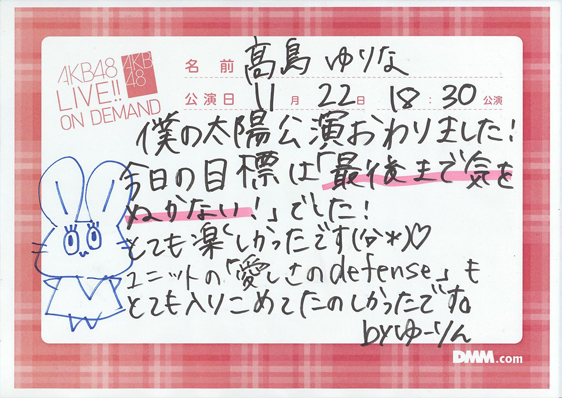 AKB48
LIVE!!
ON DEMAND
AKB
48
名前 高島 ゆりな
公演日 11月 22日 18:30公演
僕の太陽公演おわりました!
今日の目標は「最後まで気を
ぬかない!」でした!
とても楽しかったです(^^*)♡
ユニットの「愛しさのdefense」も
とても入りこめてたのしかったです。
byゆーりん
DMM.com